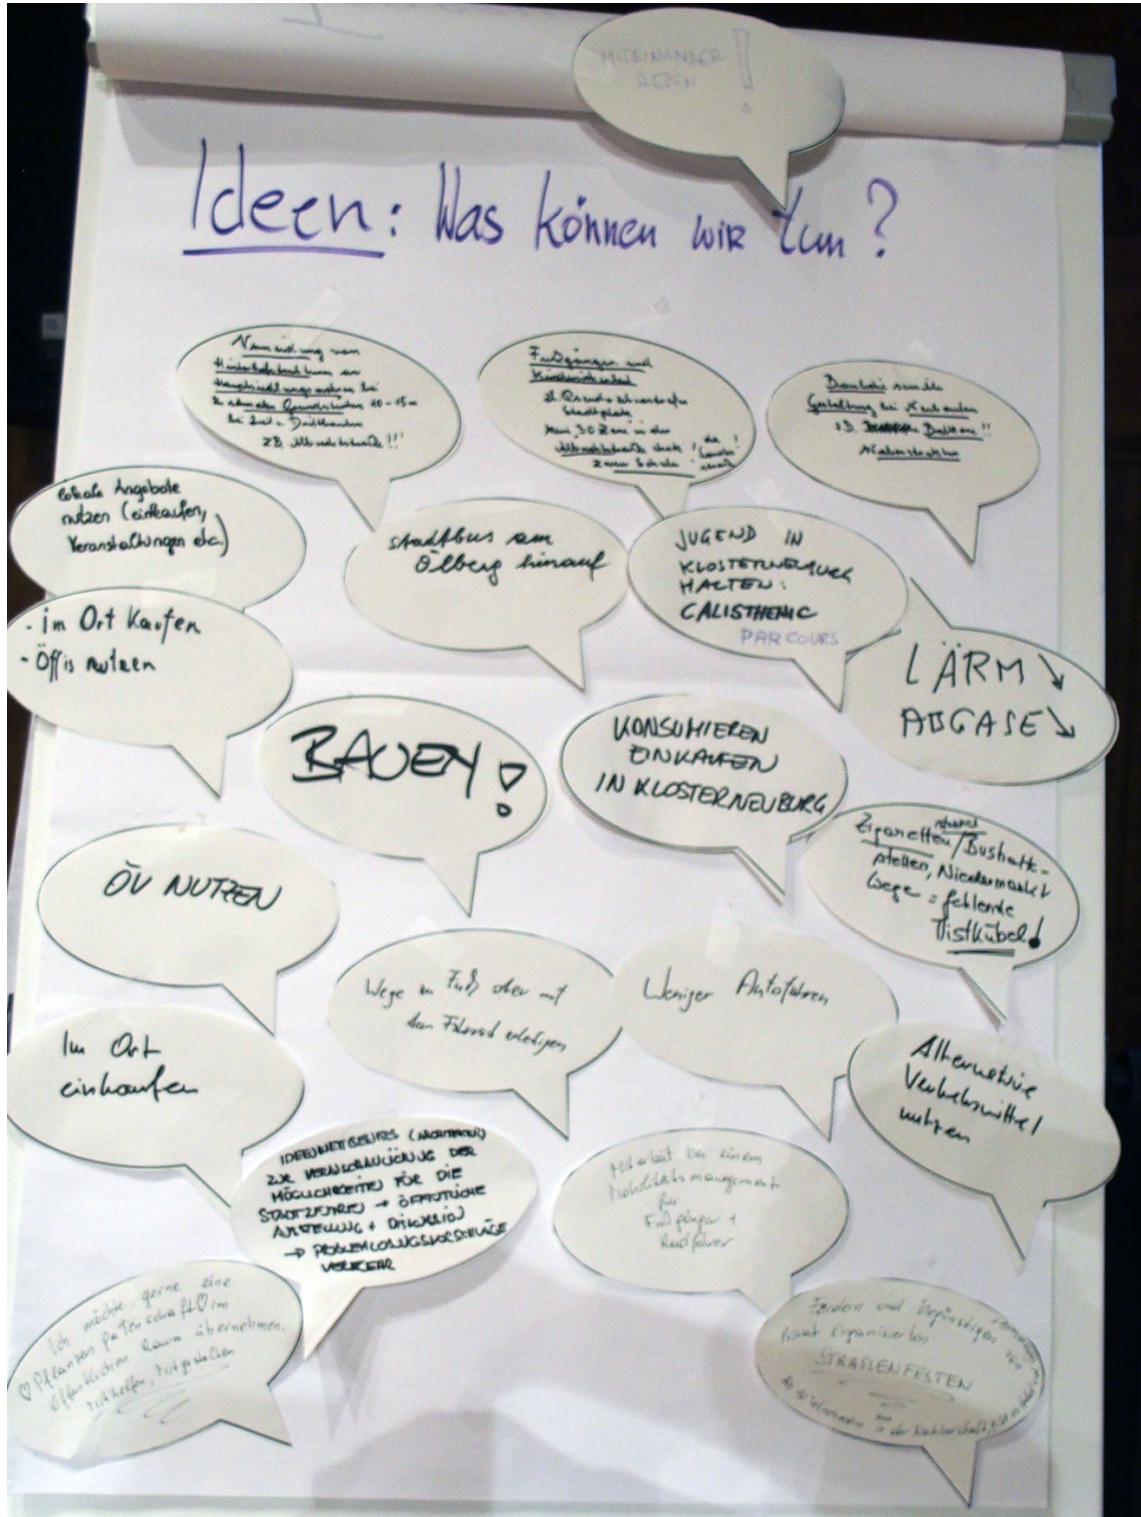 MITEINANDER
REDEN !
Ideen: Was können wir tun?
Vermeidung von
10-15m
z.B. Albrechtstraße!!!
Fußgänger und
Stadtplatz
30 Zone in der
Albrechtstraße
Gestaltung bei Neubauten
z.B. !!
lokale Angebote
nutzen (einkaufen,
Veranstaltungen etc.)
Stadtbus am
Ölberg hinauf
JUGEND IN
KLOSTERNEUBURG
HALTEN:
CALISTHENIC
PARCOURS
- im Ort Kaufen
- Öffis nutzen
LÄRM ↘
ABGASE ↘
BAUEN!
KONSUMIEREN
EINKAUFEN
IN KLOSTERNEUBURG
Zigaretten/Bushalte-
stellen, Niedermarkt
Wege = fehlende
Mistkübel!
ÖV NUTZEN
Wege zu Fuß oder mit
dem Fahrrad erledigen
Weniger Autofahren
Im Ort
einkaufen
Alternative
Verkehrsmittel
nutzen
IDEENWETTBEWERB
ZUR VERANSCHAULICHUNG DER
MÖGLICHKEITEN FÜR DIE
→ ÖFFENTLICHE
AUSSTELLUNG + DISKUSSION
→ PROBLEMLÖSUNGSVORSCHLÄGE
VERKEHR
Mitarbeit bei einem
Mobilitätsmanagement
für
Fußgänger +
Radfahrer
Ich möchte gerne eine
♡ Pflanzenpatenschaft ♡ im
öffentlichen Raum übernehmen.
mithelfen, mitgestalten
Fördern und Begünstigen von
Privat Organisierten
STRASSENFESTEN
in der Nachbarschaft